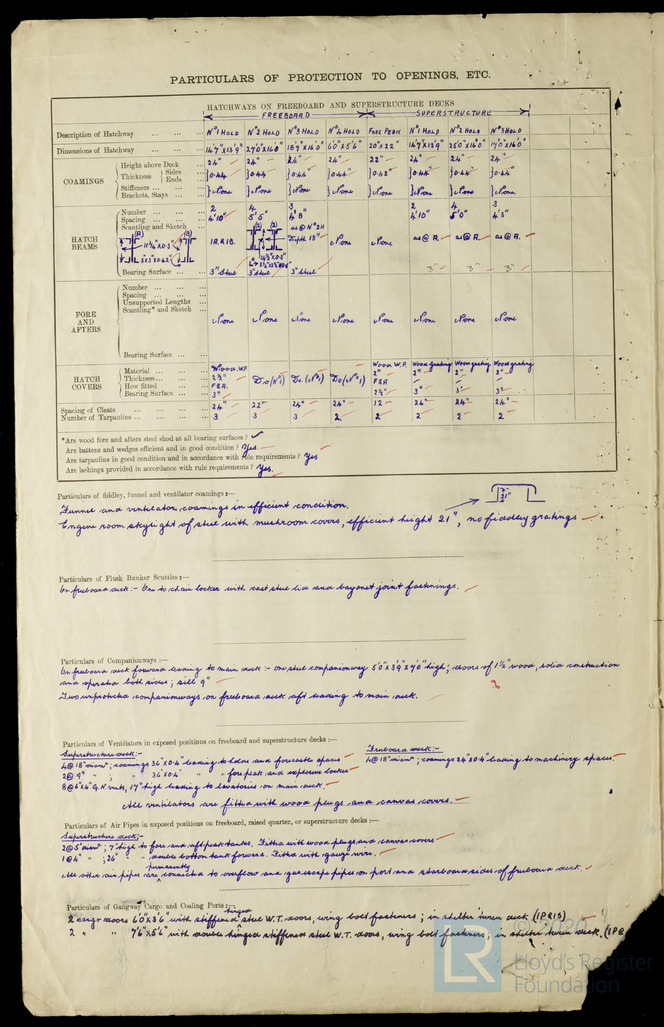 PARTICULARS OF PROTECTION TO OPENINGS, ETC.
HATCHWAYS ON FREEBOARD AND SUPERSTRUCTURE DECKS
FREEBOARD SUPERSTRUCTURE
Description of Hatchway ... ... ... Nº1 HOLD Nº2 HOLD Nº3 HOLD Nº4 HOLD FORE PEAK Nº1 HOLD Nº2 HOLD Nº3 HOLD
Dimensions of Hatchway ... ... ... 14'7"x13'9" 27'0"x16'0" 18'9"x16'0" 6'0"x5'6" 20"x22" 14'7"x13'9" 25'0"x16'0" 17'0"x16'0"
COAMINGS
Height above Deck ... 24" 24" 24" 24" 22" 24" 24" 24"
Thickness { Sides ... 0.44 0.44 0.44 0.44 0.42 0.44 0.44 0.44
Ends ...
Stiffeners ... ... None None None None None None None None
Brackets, Stays ... ...
HATCH BEAMS
Number ... ... ... 2 4 3 2 4 3
Spacing ... ... ... 4'10" 5'5" 4'8" 4'10" 5'0" 4'3"
Scantling and Sketch ... (1) (2) as @ Nº2H
(A) (B) 1A & 1B. Depth 13" None None as @ A. as @ A. as @ A.
Bearing Surface ... ... 3" Steel 3" Steel 3" Steel 3" 3" 3"
FORE AND AFTERS
Number ... ... ...
Spacing ... ... ...
Unsupported Lengths ...
Scantling* and Sketch ...
None None None None None None None None
Bearing Surface ... ...
HATCH COVERS
Material ... ... ... Wood W.P. Wood W.P. Wood grating Wood grating Wood grating
Thickness ... ... ... 2½" Do (Nº1) Do (Nº1) Do (Nº1) 2" 2" 2" 2"
How fitted ... ... F & A. F & A
Bearing Surface ... ... 3" 2½" 3" 3" 3"
Spacing of Cleats ... ... ... 24" 22" 24" 24" 12 24" 24" 24"
Number of Tarpaulins ... ... ... 3 3 3 2 2 2 2 2
*Are wood fore and afters steel shod at all bearing surfaces? ✓
Are battens and wedges efficient and in good condition? Yes.
Are tarpaulins in good condition and in accordance with rule requirements? Yes
Are lashings provided in accordance with rule requirements? Yes.
Particulars of fiddley, funnel and ventilator coamings:—
21"
Funnel and ventilator coamings in efficient condition.
Engine room skylight of steel with mushroom covers, efficient height 21", no fiddley gratings
Particulars of Flush Bunker Scuttles:—
On freeboard deck:- One to chain locker with cast steel lid and bayonet joint fastenings.
Particulars of Companionways:—
On freeboard deck forward leading to main deck:- one steel companionway 5'0"x3'9"x7'0" high; doors of 1½" wood, solid construction
and operated both sides; sill 9"
Two unprotected companionways on freeboard deck aft leading to main deck.
Particulars of Ventilators in exposed positions on freeboard and superstructure decks:—
Superstructure deck:-
4 @ 18" diamr; coamings 36"x0.4" leading to holds and forecastle spaces
2 @ 9" " ; " 36"x0.4" " " forepeak and explosive locker
8 @ 6"x4" G.N. vents, 17" high leading to lavatories on main deck.
Freeboard deck:-
4 @ 18" diamr; coamings 24"x0.4 leading to machinery spaces.
All ventilators are fitted with wood plugs and canvas covers.
Particulars of Air Pipes in exposed positions on freeboard, raised quarter, or superstructure decks:—
Superstructure deck:-
2 @ 5" diamr; 7" high to fore and aft peak tanks. Fitted with wood plugs and canvas covers
1 @ 4" " ; 26" " " double bottom tank forward. Fitted with gauze wire.
permanently
All other air pipes are connected to overflow and gas escape pipes on port and starboard sides of freeboard deck.
Particulars of Gangway Cargo and Coaling Ports:—
hinged
2 cargo doors 6'0"x3'6" with stiffened steel W.T. doors, wing bolt fasteners; in shelter 'tween deck (1P & 1S)
2 " " 7'6"x5'6" with double hinged stiffened steel W.T. doors, wing bolt fasteners; in shelter tween deck. (1P &
LR
Lloyd's Register
Foundation